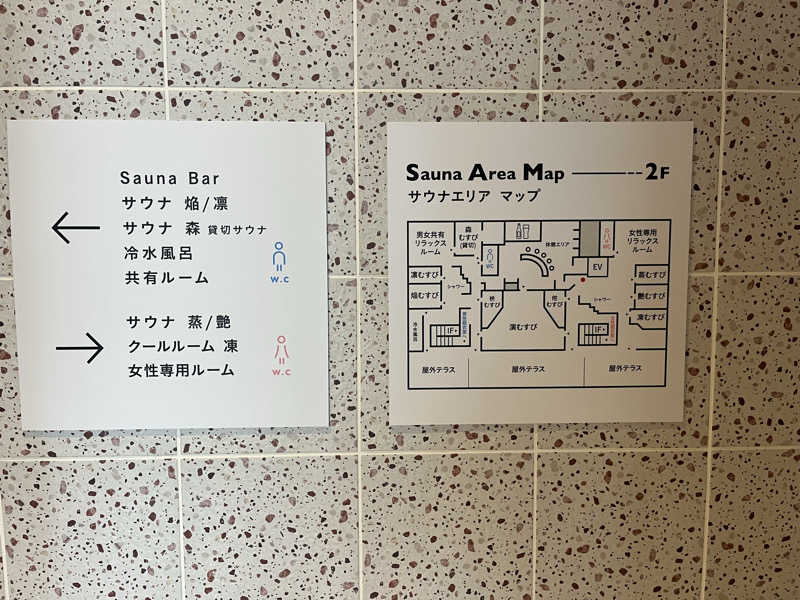 Sauna Bar
サウナ 焔/凛
サウナ 森 貸切サウナ
冷水風呂
共有ルーム
w.c
サウナ 蒸/艶
クールルーム 凍
女性専用ルーム
w.c
Sauna Area Map 2F
サウナエリア マップ
男女共有
リラックス
ルーム
森
むすび
(貸切)
WC
休憩エリア
WC
女性専用
リラックス
ルーム
EV
凛むすび
焔むすび
シャワー
冷水風呂
1F
演むすび
むすび
むすび
シャワー
蒸むすび
艶むすび
凍むすび
1F
屋外テラス
屋外テラス
屋外テラス